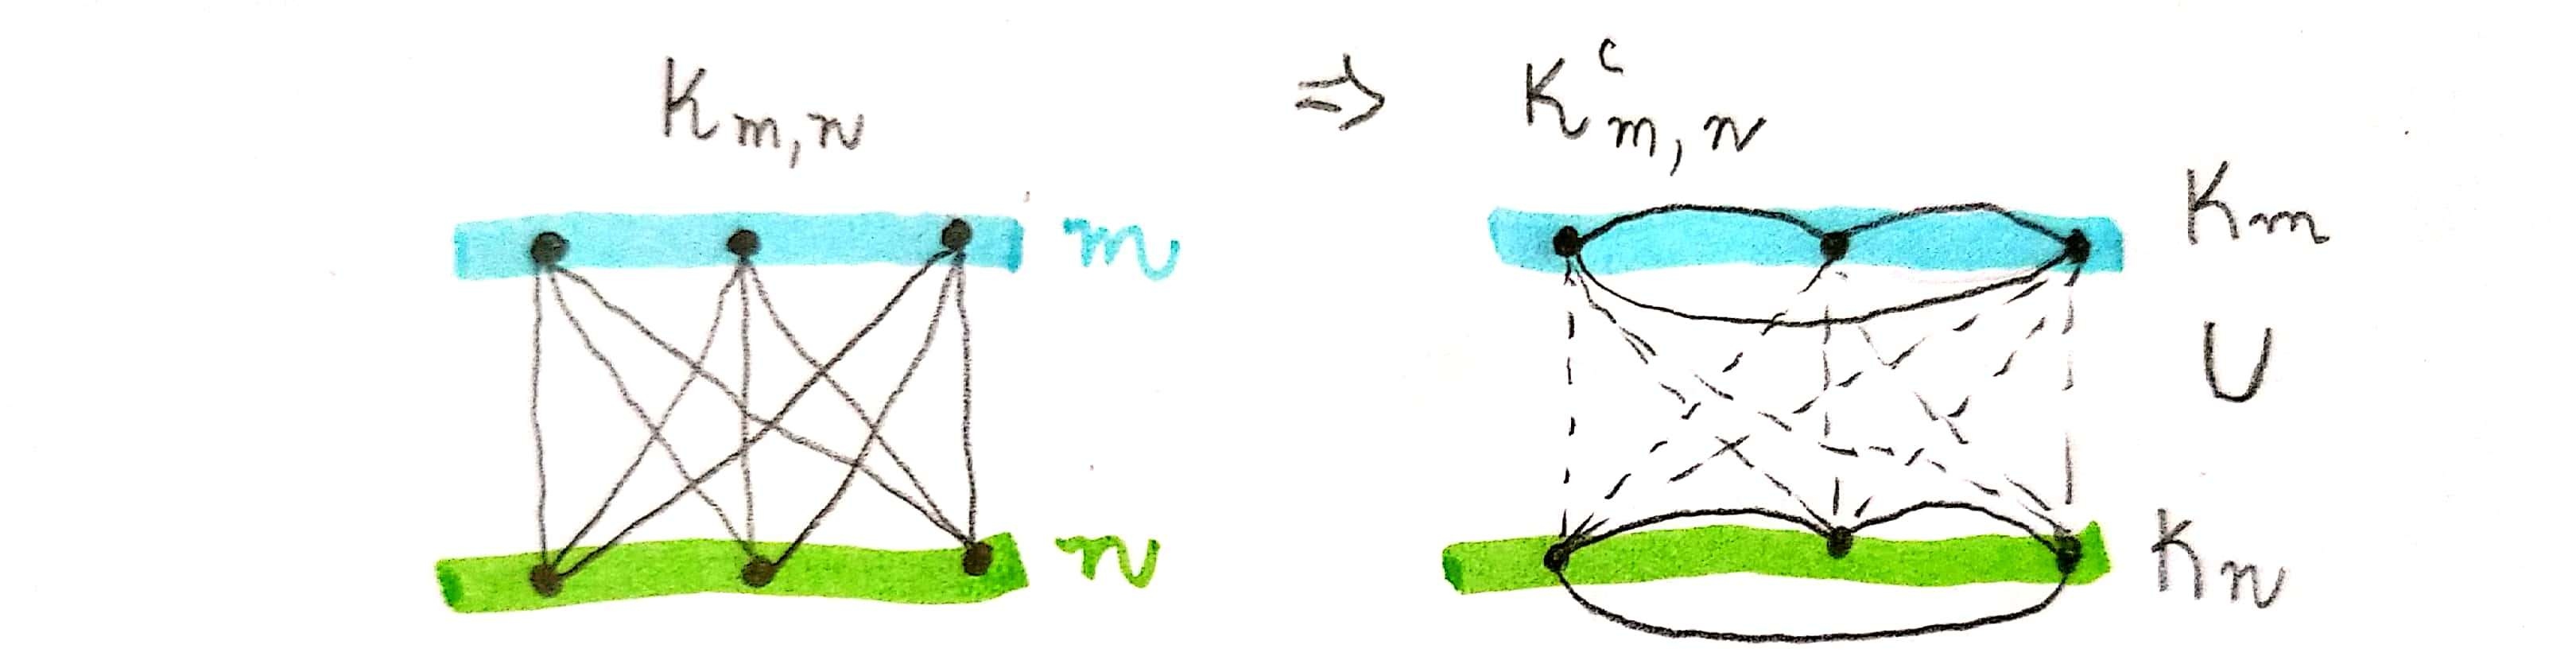 K m,n ⇒ K^c m,n
m
n
K m
∪
K n